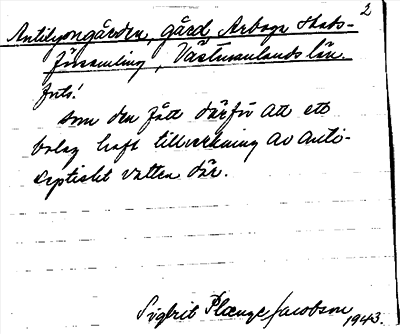 2
Antilyongården, gård, Arboga Stads-
församling, Västmanlands län.
som den fått därför att ett
bolag haft tillverkning av anti-
septiskt vatten där.
Sigbrit Plænge Jacobson
1943.